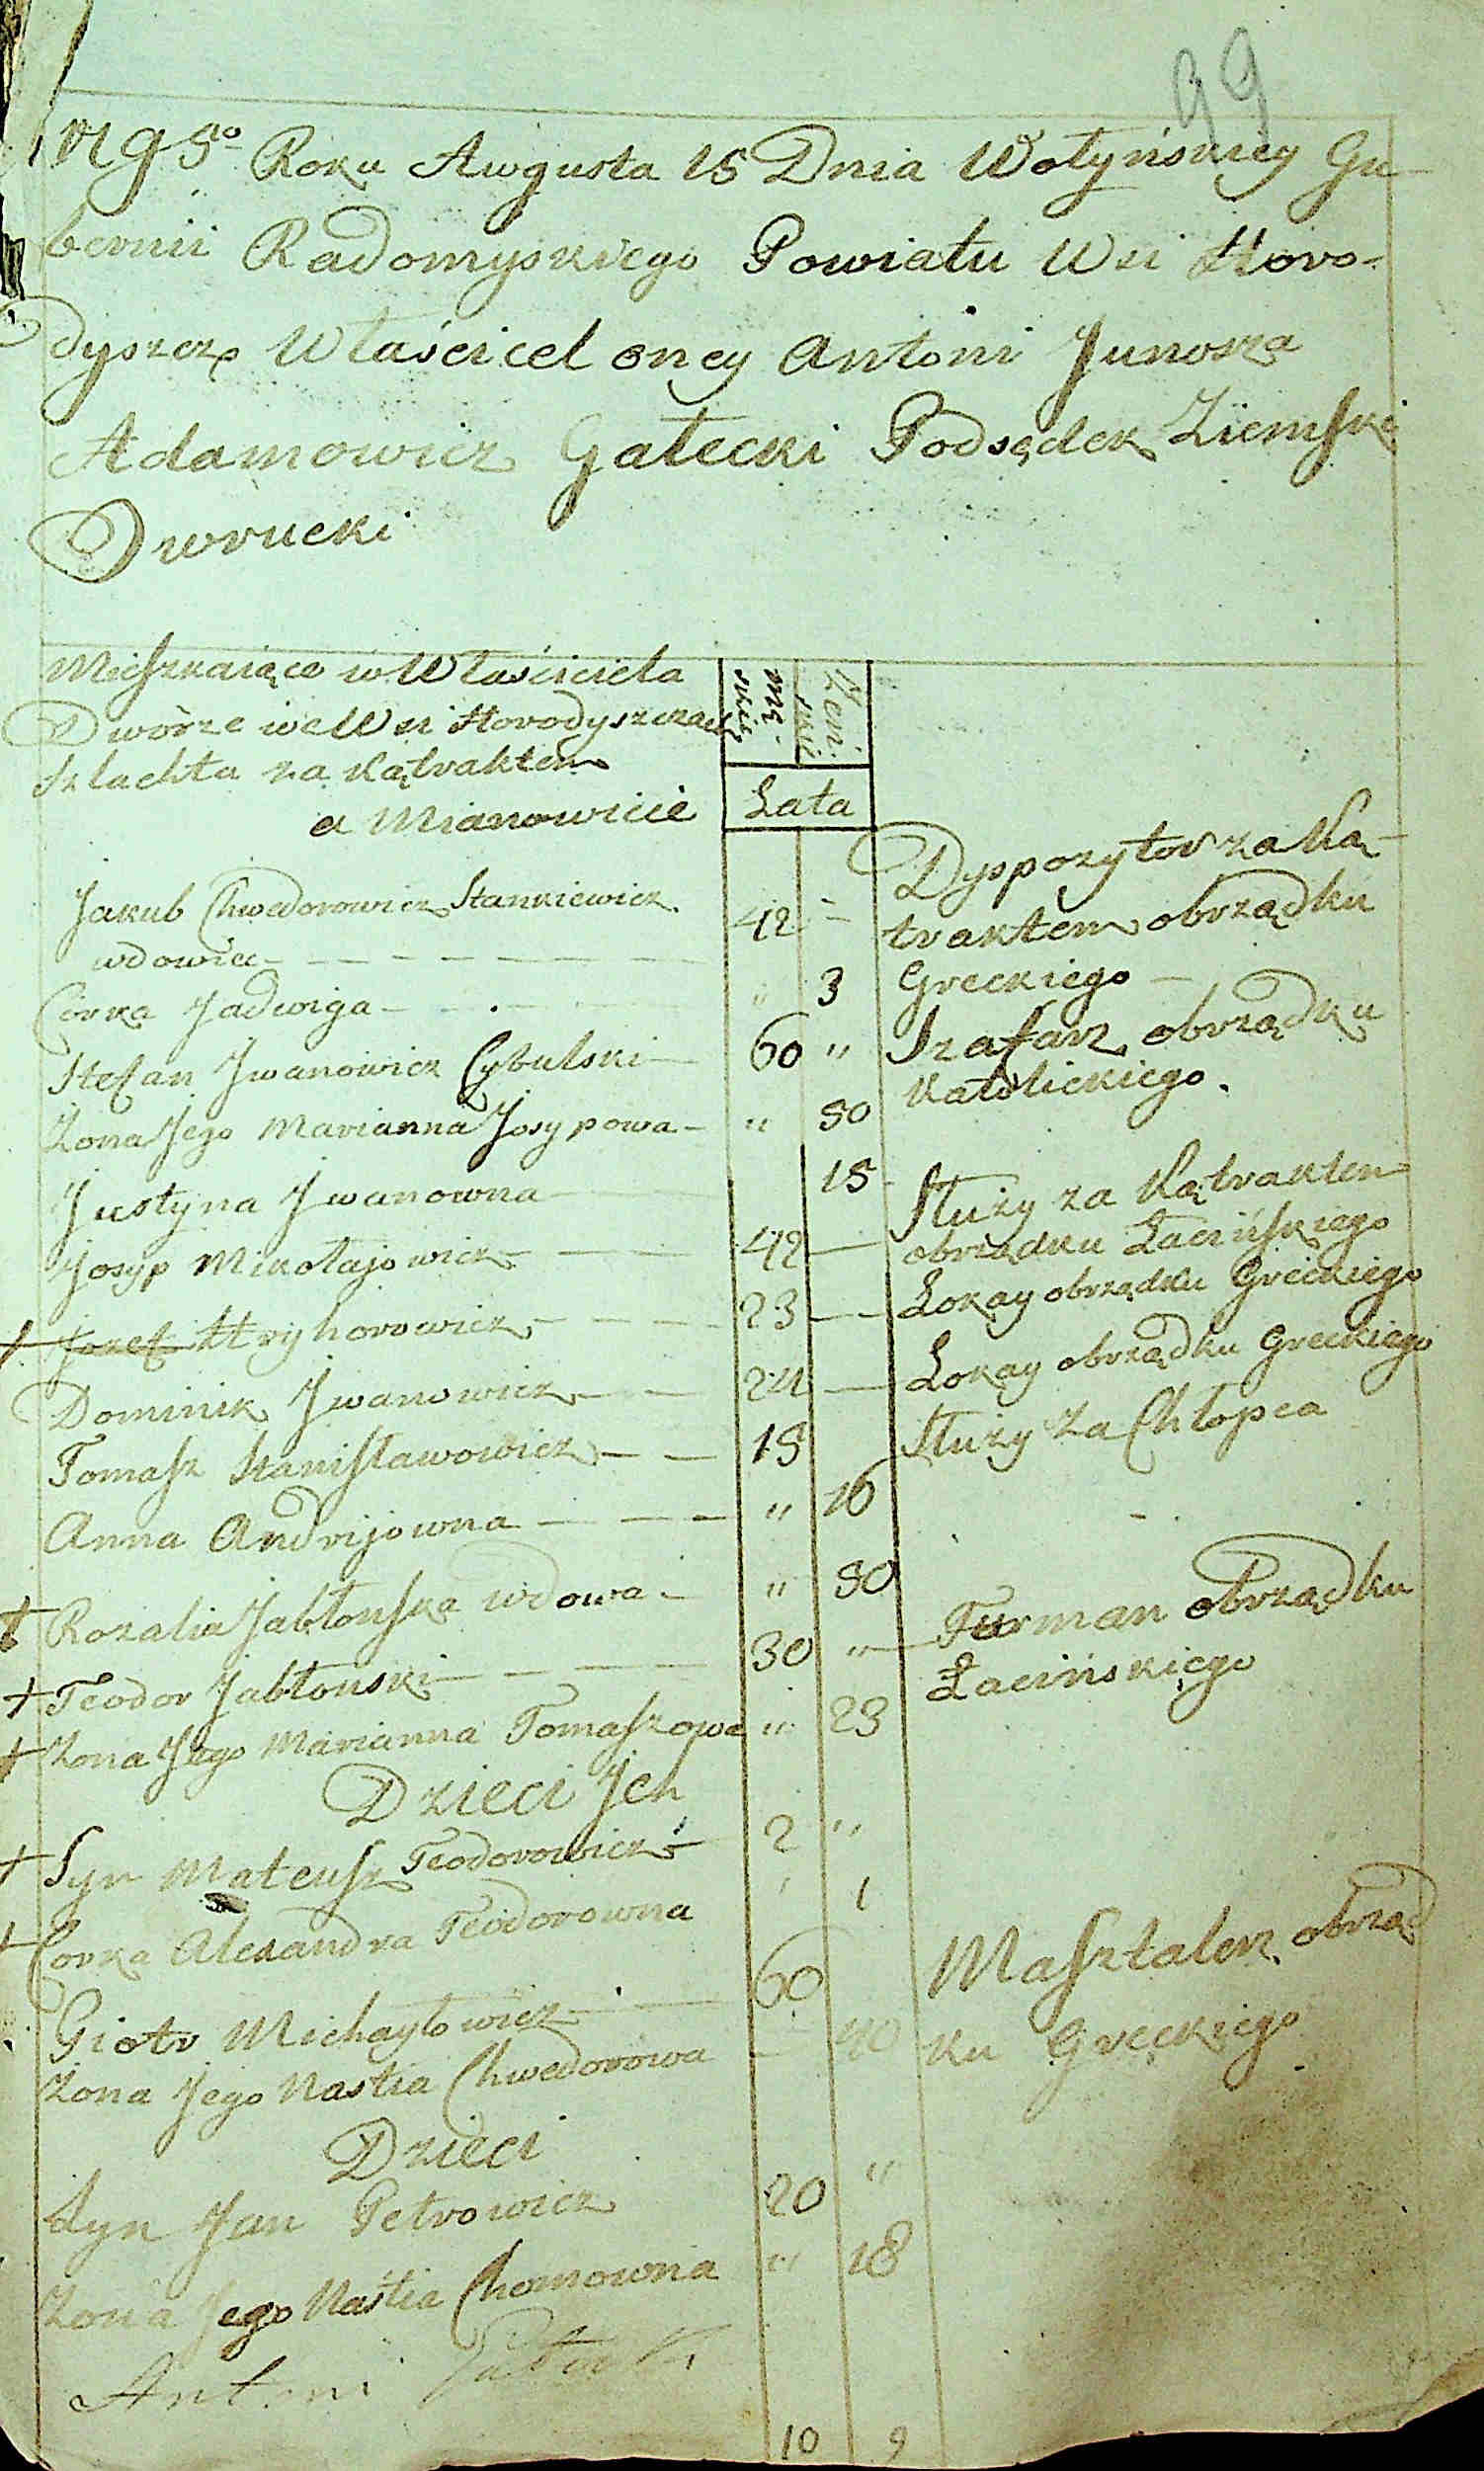 99
1795º Roku Awgusta 15 Dnia Wołyńskiey Gu-
bernii Radomyskiego Powiatu Wsi Horo-
dyszcz Właścicel oney Antoni Junosza
Adamowicz Gałecki Podsędek Ziemski
Owrucki
Mieszkaiące w Właściciela
Dworze we Wsi Horodyszczach
Szlachta za Kątraktem
a Mianowicie
Lata
Jakub Chwedorowicz Stankiewicz 42 Dyspozytor za Ką-
wdowiec traktem obrządku
Córka Jadwiga " 3 Greckiego
Stefan Jwanowicz Cybulski 60 " Szafarz obrządku
Żona Jego Marianna Josypowa " 50 Katolickiego.
Justyna Jwanowna 15
Josyp Mikołajowicz 42 Służy za Kątraktem
obrządku Łacińskiego
Jozef Hryhorowicz 23 Lokay obrządku Greckiego
Dominik Jwanowicz 24 Lokay obrządku Greckiego
Tomasz Stanisławowicz 15 Służy za Chłopca
Anna Andrijowna " 16
† Rozalia Jabłonska wdowa " 50
† Teodor Jabłonski 30 " Furman obrządku
† Żona Jego Marianna Tomaszowa " 23 Łacińskiego
Dzieci Jch
† Syn Mateusz Teodorowicz 2 "
† Corka Alexandra Teodorowna " 1
Piotr Michayłowicz 60 Masztalerz obrząd
Żona Jego Nastia Chwedorowa 40 ku Greckiego
Dzieci
Syn Jan Petrowicz 20 "
Żona Jego Nastia Chomowna " 18
Antoni Gałecki
10 9